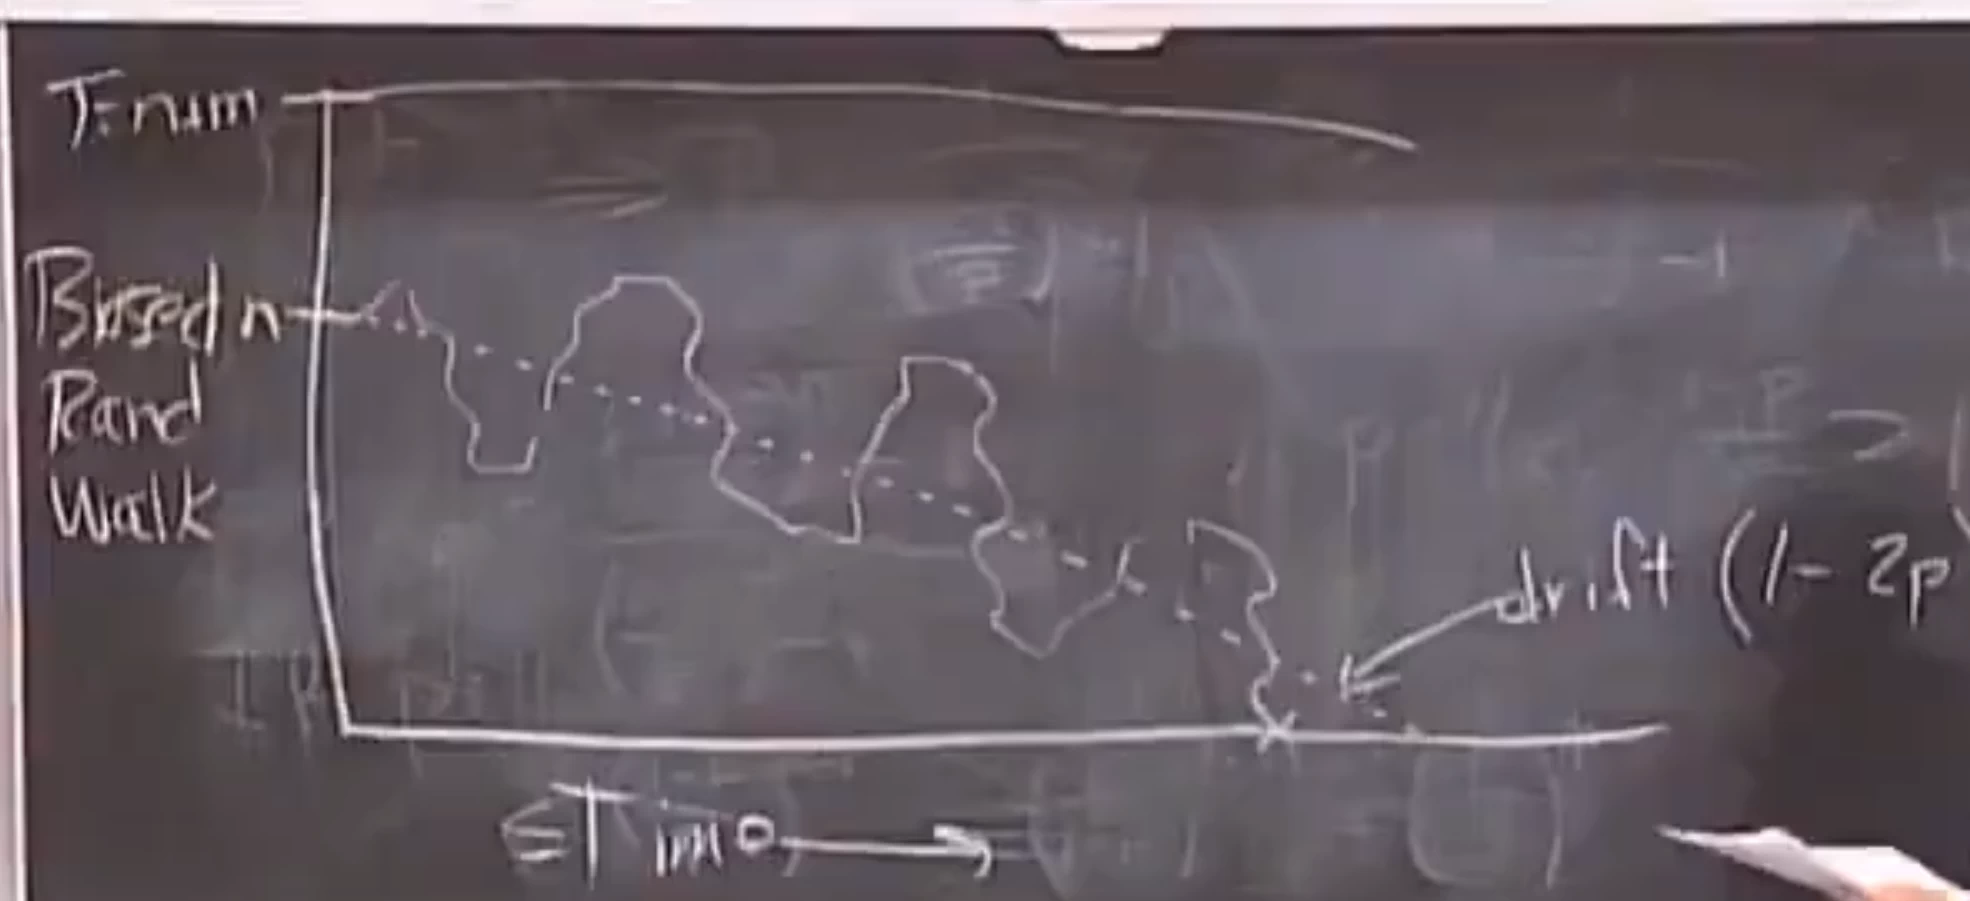 T=n+m
Biased n
Rand
Walk
drift (1-2p)
Time